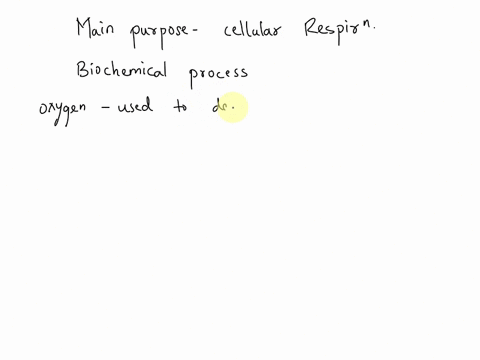 Main purpose - cellular Respirⁿ.
Biochemical process
oxygen - used to de.